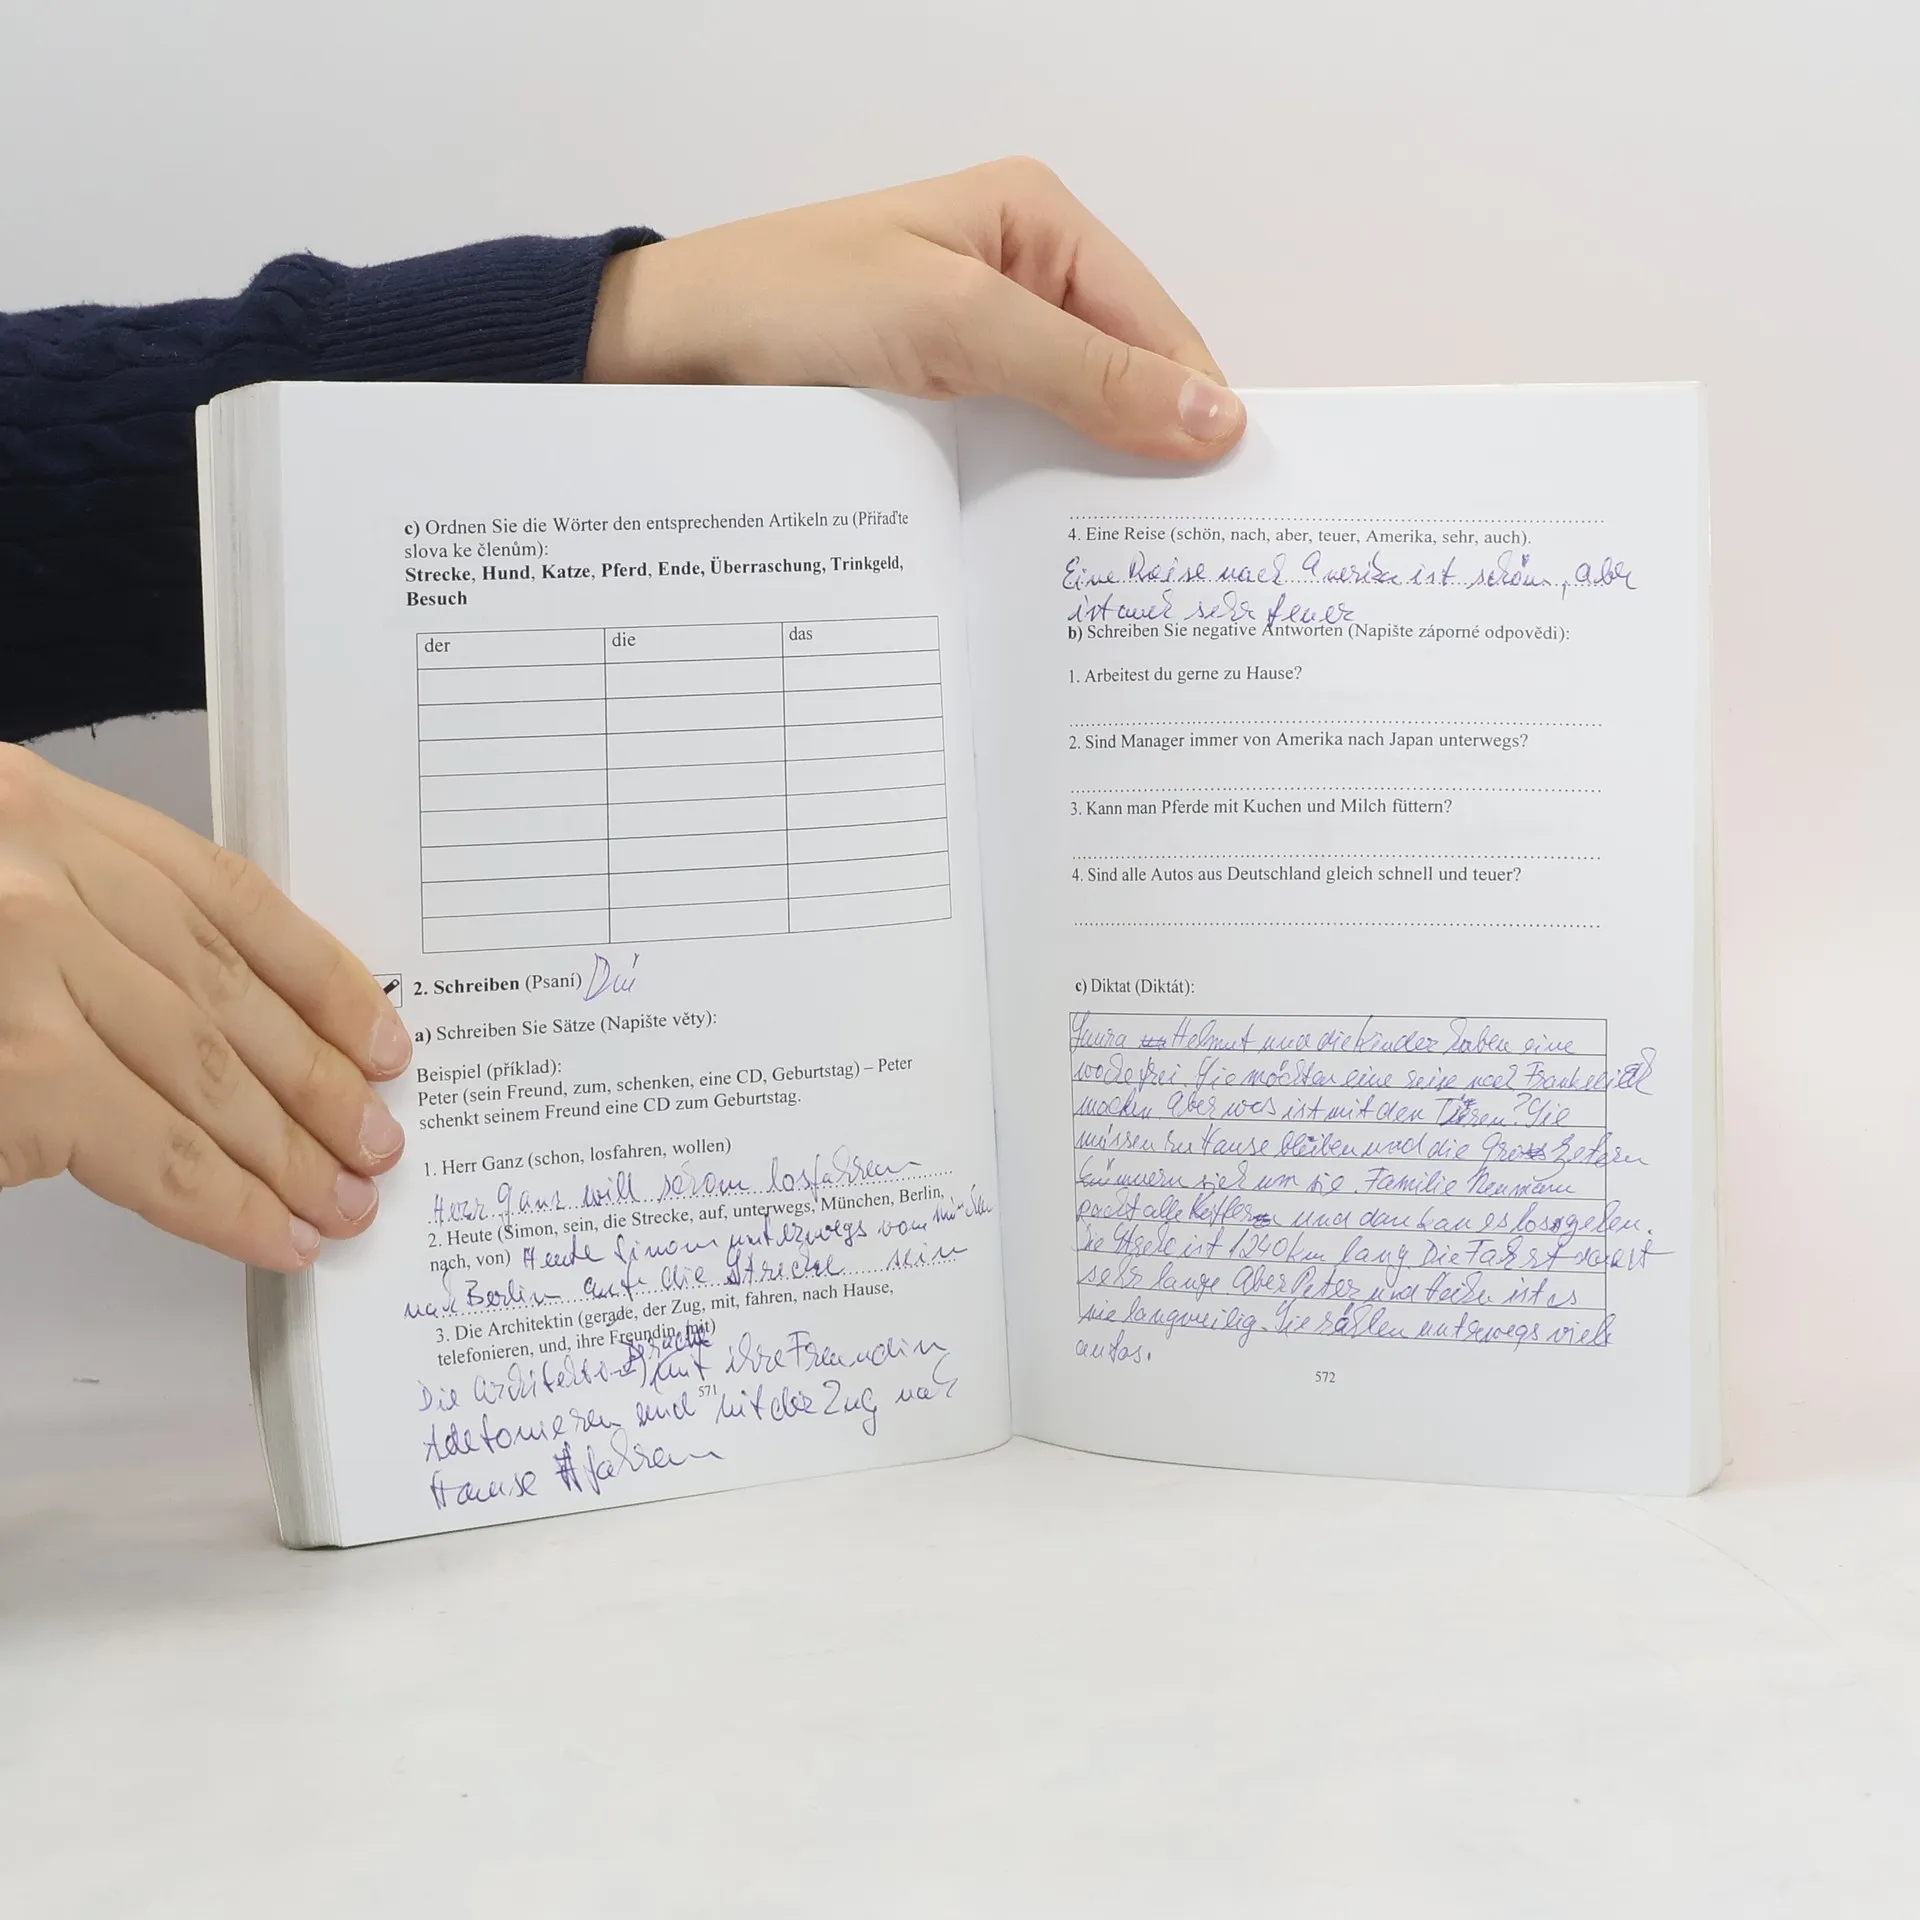 c) Ordnen Sie die Wörter den entsprechenden Artikeln zu (Přiřaďte
slova ke členům):
Strecke, Hund, Katze, Pferd, Ende, Überraschung, Trinkgeld,
Besuch
der die das
2. Schreiben (Psaní)
a) Schreiben Sie Sätze (Napište věty):
Beispiel (příklad):
Peter (sein Freund, zum, schenken, eine CD, Geburtstag) – Peter
schenkt seinem Freund eine CD zum Geburtstag.
1. Herr Ganz (schon, losfahren, wollen)
Herr Ganz will schon losfahren
2. Heute (Simon, sein, die Strecke, auf, unterwegs, München, Berlin,
nach, von) Heute Simon unterwegs von München
nach Berlin auf die Strecke sein
3. Die Architektin (gerade, der Zug, mit, fahren, nach Hause,
telefonieren, und, ihre Freundin, mit)
Die mit ihre Freundin
und mit der Zug nach
571
Hause fahren
4. Eine Reise (schön, nach, aber, teuer, Amerika, sehr, auch).
Eine Reise nach Amerika ist schön, aber
ist auch sehr teuer
b) Schreiben Sie negative Antworten (Napište záporné odpovědi):
1. Arbeitest du gerne zu Hause?
2. Sind Manager immer von Amerika nach Japan unterwegs?
3. Kann man Pferde mit Kuchen und Milch füttern?
4. Sind alle Autos aus Deutschland gleich schnell und teuer?
c) Diktat (Diktát):
Helmut und die Kinder haben eine
woche frei. Sie möchten eine reise nach
machen. Aber was ist mit den Tieren? Sie
müssen zu Hause bleiben und die
kümmern sich um sie. Familie Neumann
packt alle und dan kan es losgehen.
Die ist 1240 km lang. Die Fahrt dauert
sehr lange. Aber Peter und ist es
nie langweilig. Sie zählen unterwegs viele
autos.
572